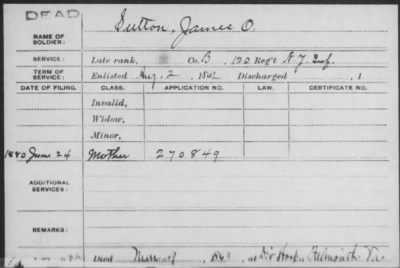 DEAD
NAME OF SOLDIER: Sutton, James O.
SERVICE: Late rank, Co. B, 120 Reg't N.Y. Inf.
TERM OF SERVICE: Enlisted Aug. 2, 1862 Discharged , 1
DATE OF FILING. CLASS. APPLICATION NO. LAW. CERTIFICATE NO.
Invalid,
Widow,
Minor,
1880 June 24 Mother 270849
ADDITIONAL SERVICES:
REMARKS:
Died 186 at Div Hosp. Falmouth Va.